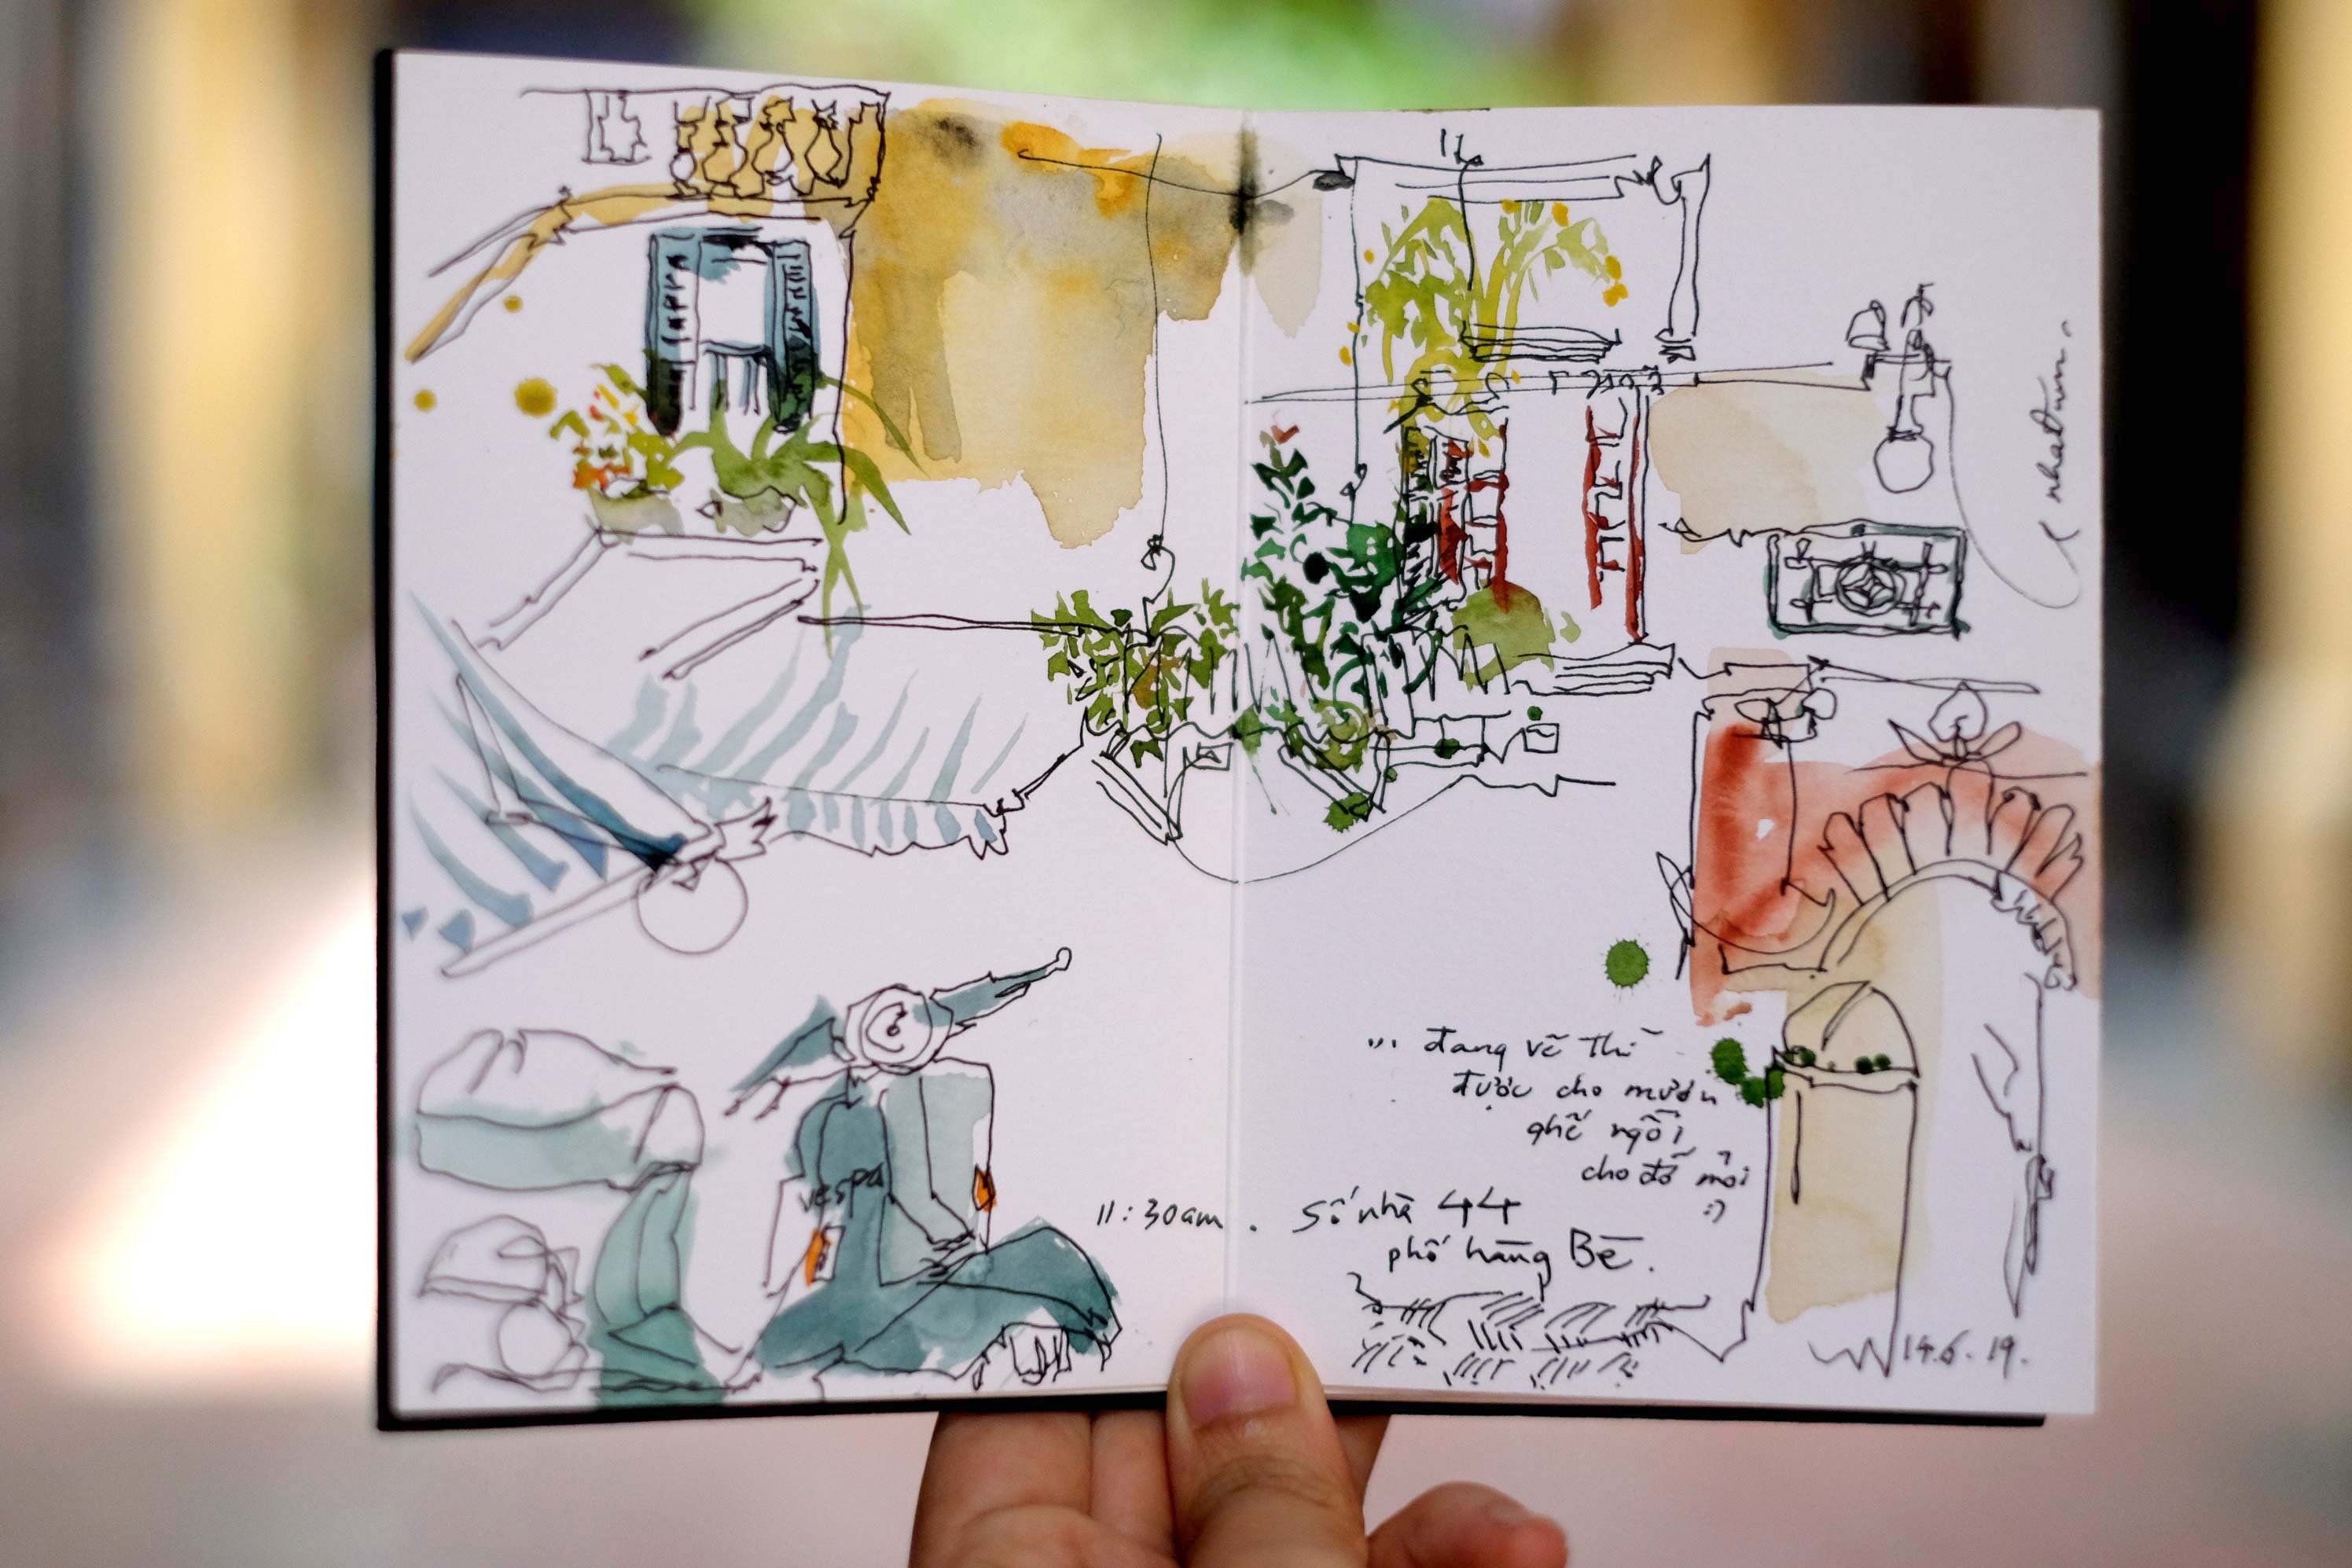 nhattum.
... đang vẽ thì
được cho mượn
ghế ngồi
cho đỡ mỏi
:)
vespa
11:30am. Số nhà 44
phố hàng Bè.
14.6.19.